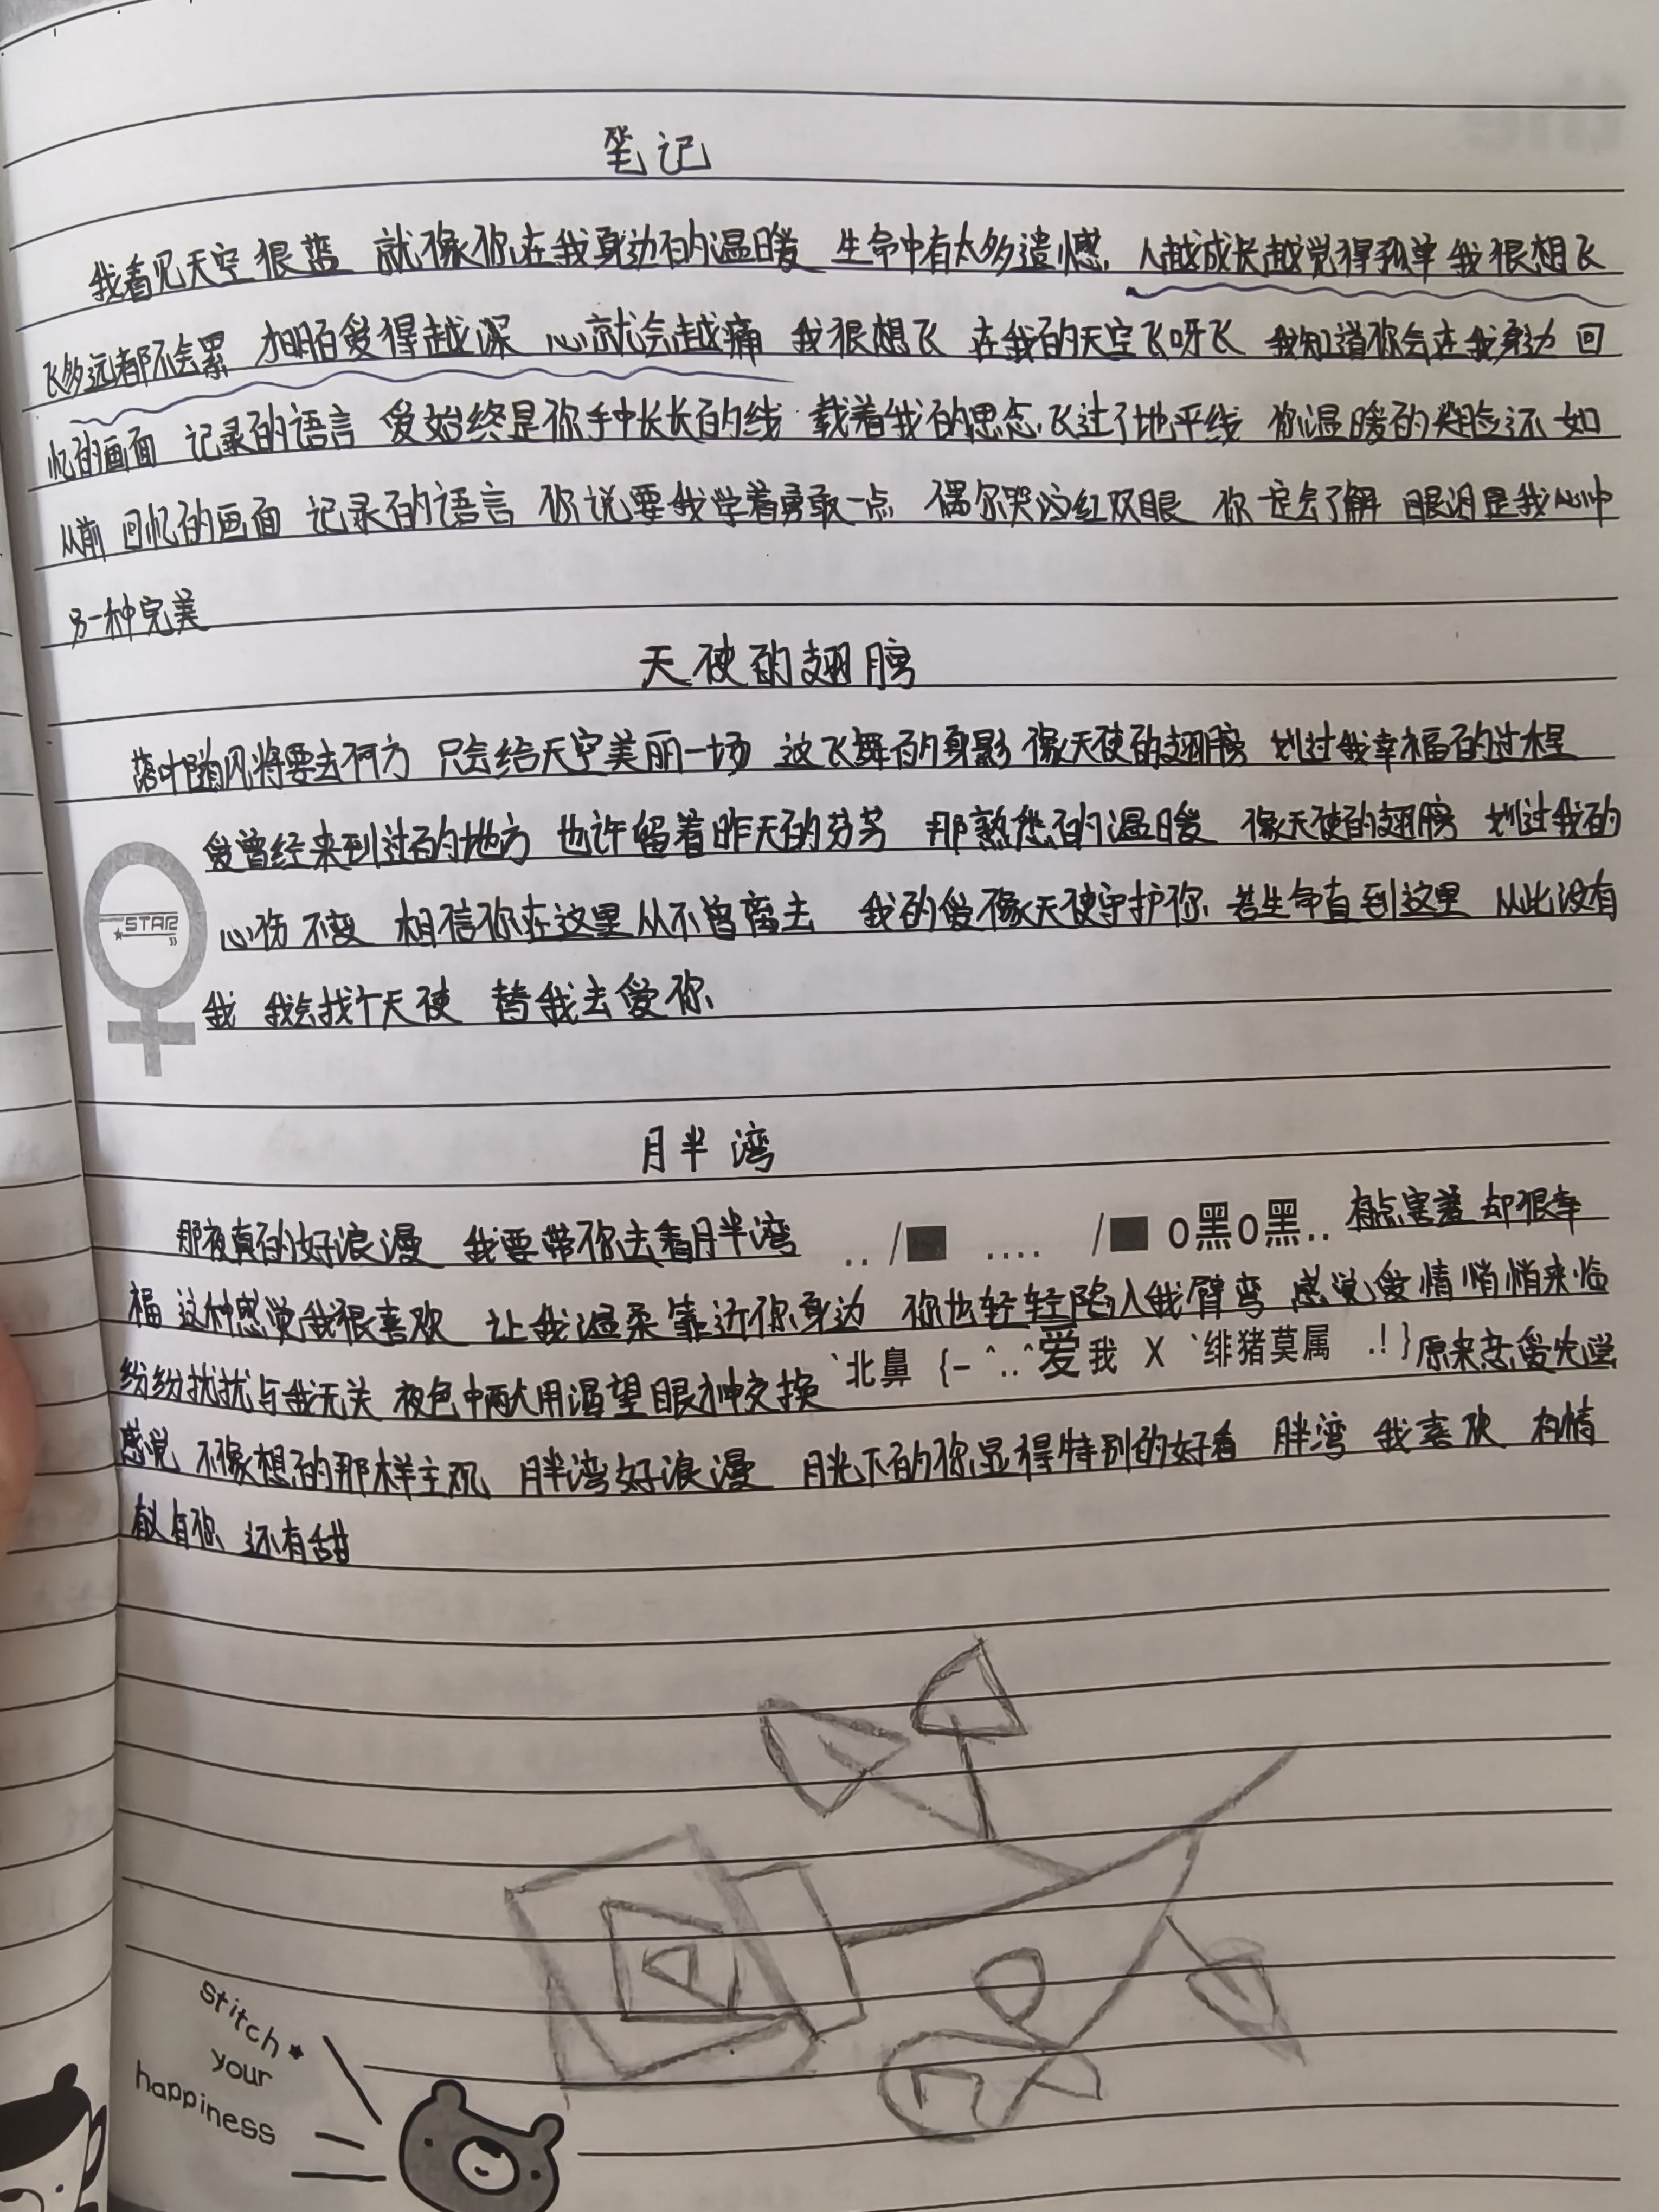 笔记
我看见天空很蓝 就像你在我身边的温暖 生命中有太多遗憾 人越成长越觉得孤单 我很想飞
飞多远都不会累 才明白爱得越深 心就会越痛 我很想飞 在我的天空飞呀飞 我知道你会在我身边 回
忆的画面 记录的语言 爱始终是你手中长长的线 载着我的思念飞过了地平线 你温暖的笑脸还如
从前 回忆的画面 记录的语言 你说要我学着勇敢一点 偶尔哭泣红双眼 你一定会了解 眼泪是我心中
另一种完美
天使的翅膀
落叶随风将要去何方 只会给天空美丽一场 这飞舞的身影 像天使的翅膀 划过我幸福的过程
爱曾经来到过的地方 也许留着昨天的芬芳 那熟悉的温暖 像天使的翅膀 划过我的
STAR
心伤 不变 相信你在这里从不曾离去 我的爱像天使守护你 若生命直到这里 从此没有
我 我会找个天使 替我去爱你
月半湾
那夜真的好浪漫 我要带你去看月半湾 .. /■ .... /■ o黑o黑.. 有点害羞 却很幸
福 这种感觉我很喜欢 让我温柔靠近你身边 你也轻轻陷入我臂弯 感觉爱情悄悄来临
纷纷扰扰与我无关 夜色中两人用渴望眼神交换 `北鼻 {- ^..^爱我 X `绯猪莫属 .! } 原来恋爱先凭
感觉 不像想的那样主观 月半湾好浪漫 月光下的你显得特别的好看 月半湾 我喜欢
有你 还有甜
stitch
your
happiness